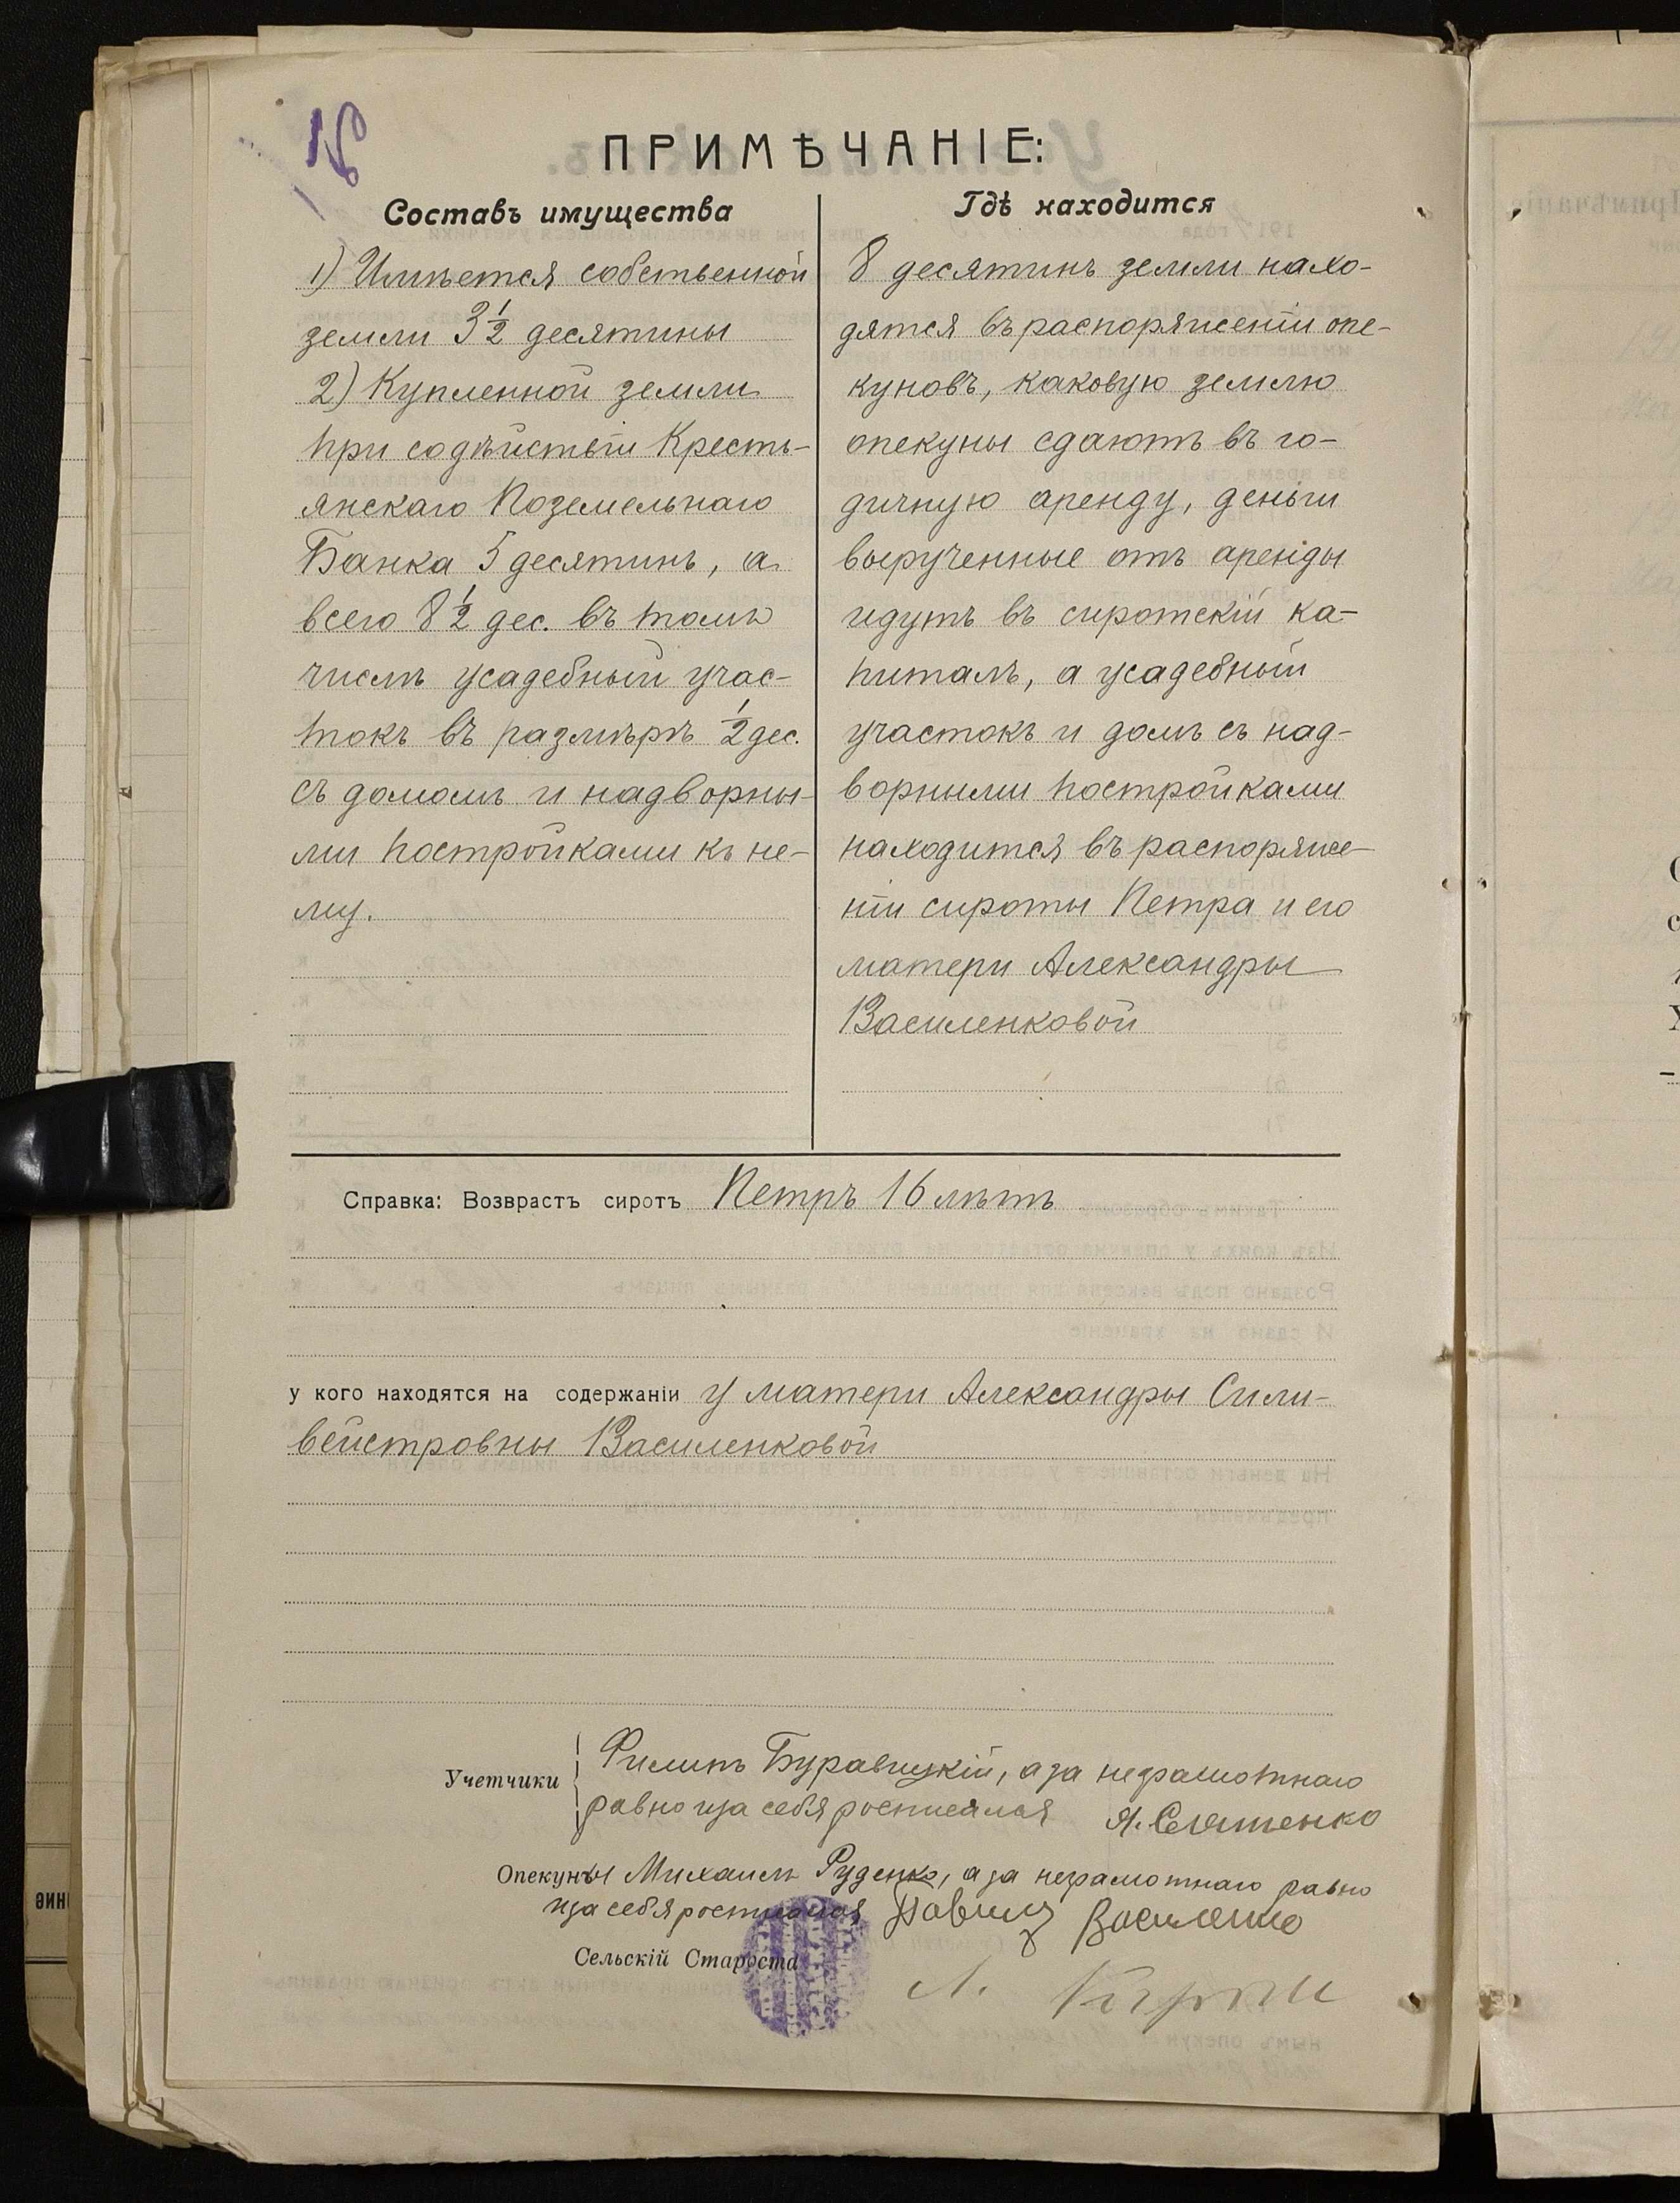 ПРИМѢЧАНІЕ:
Составъ имущества
1) Имѣется собственной
земли 3 1/2 десятины
2) Купленной земли
при содѣйствіи Кресть-
янскаго Поземельнаго
Банка 5 десятинъ, а
всего 8 1/2 дес. въ томъ
числѣ усадебный учас-
токъ въ размѣрѣ 1/2 дес.
съ домомъ и надворны-
ми постройками къ не-
му.
Гдѣ находится
8 десятинъ земли нахо-
дятся въ распоряженіи опе-
куновъ, каковую землю
опекуны сдаютъ въ го-
дичную аренду, деньги
вырученные отъ аренды
идутъ въ сиротскій ка-
питалъ, а усадебный
участокъ и домъ съ над-
ворными постройками
находится въ распоряже-
ніи сироты Петра и его
матери Александры
Василенковой
Справка: Возврастъ сиротъ Петръ 16 лѣтъ
у кого находятся на содержаніи у матери Александры Сили-
вейстровны Василенковой
Учетчики Филипъ Буравицкій, а за неграмотнаго
равно и за себя росписался Я.
Опекуны Михаилъ Руденко, а за неграмотнаго равно
и за себя росписался Василенко
Сельскій Староста